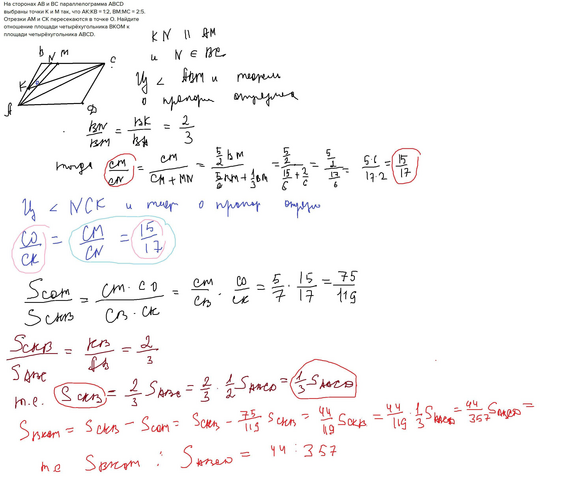 На сторонах AB и BC параллелограмма ABCD
выбраны точки K и M так, что AK:KB = 1:2, BM:MC = 2:5.
Отрезки AM и CK пересекаются в точке O. Найдите
отношение площади четырёхугольника BKOM к
площади четырёхугольника ABCD.
KN || AM
и N ∈ BC
B N M C
K
A D
Из < ABM и теорема
о пропорц отрезках
BN/BM = BK/BA = 2/3
тогда CM/CN = CM/(CM + MN) = (5/2 BM)/(5/2 BM + 1/3 BM) = (5/2)/(15/6 + 2/6) = (5/2)/(17/6) = 5·6/17·2 = 15/17
Из < NCK и теор о пропор отрез
CO/CK = CM/CN = 15/17
S COM / S CKB = CM · CO / CB · CK = CM/CB · CO/CK = 5/7 · 15/17 = 75/119
S CKB / S ABC = KB/AB = 2/3
т.е. S CKB = 2/3 S ABC = 2/3 · 1/2 S ABCD = 1/3 S ABCD
S BKOM = S CKB − S COM = S CKB − 75/119 S CKB = 44/119 S CKB = 44/119 · 1/3 S ABCD = 44/357 S ABCD =
т.е S BKOM : S ABCD = 44 : 357